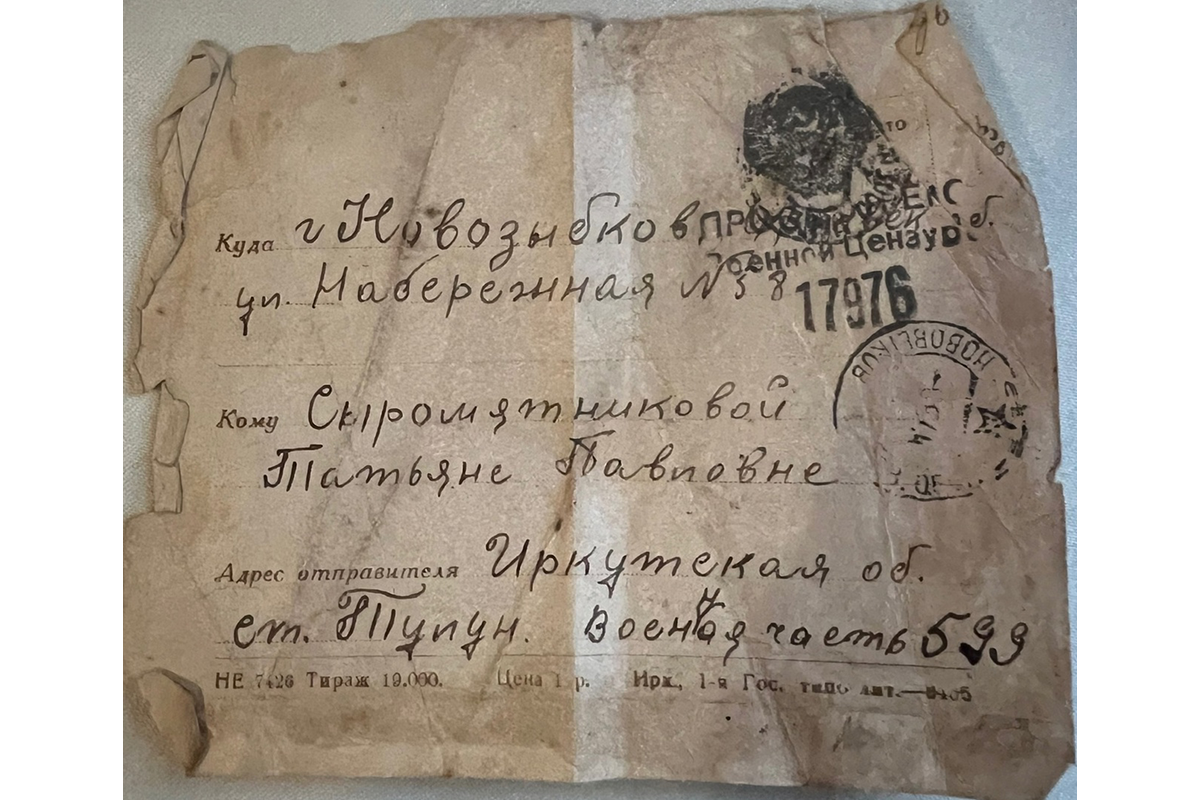 Куда г Новозыбков
ПРОСМОТРЕНО
Военной Цензурой
17976
ул. Набережная № 58
НОВОЗЫБКОВ
Кому Сыромятниковой
Татьяне Павловне
Адрес отправителя Иркутская об.
ст. Тулун. Военная часть 599
НЕ 7426 Тираж 19.000. Цена 1 р. Ирк., 1-я Гос. типо лит.—